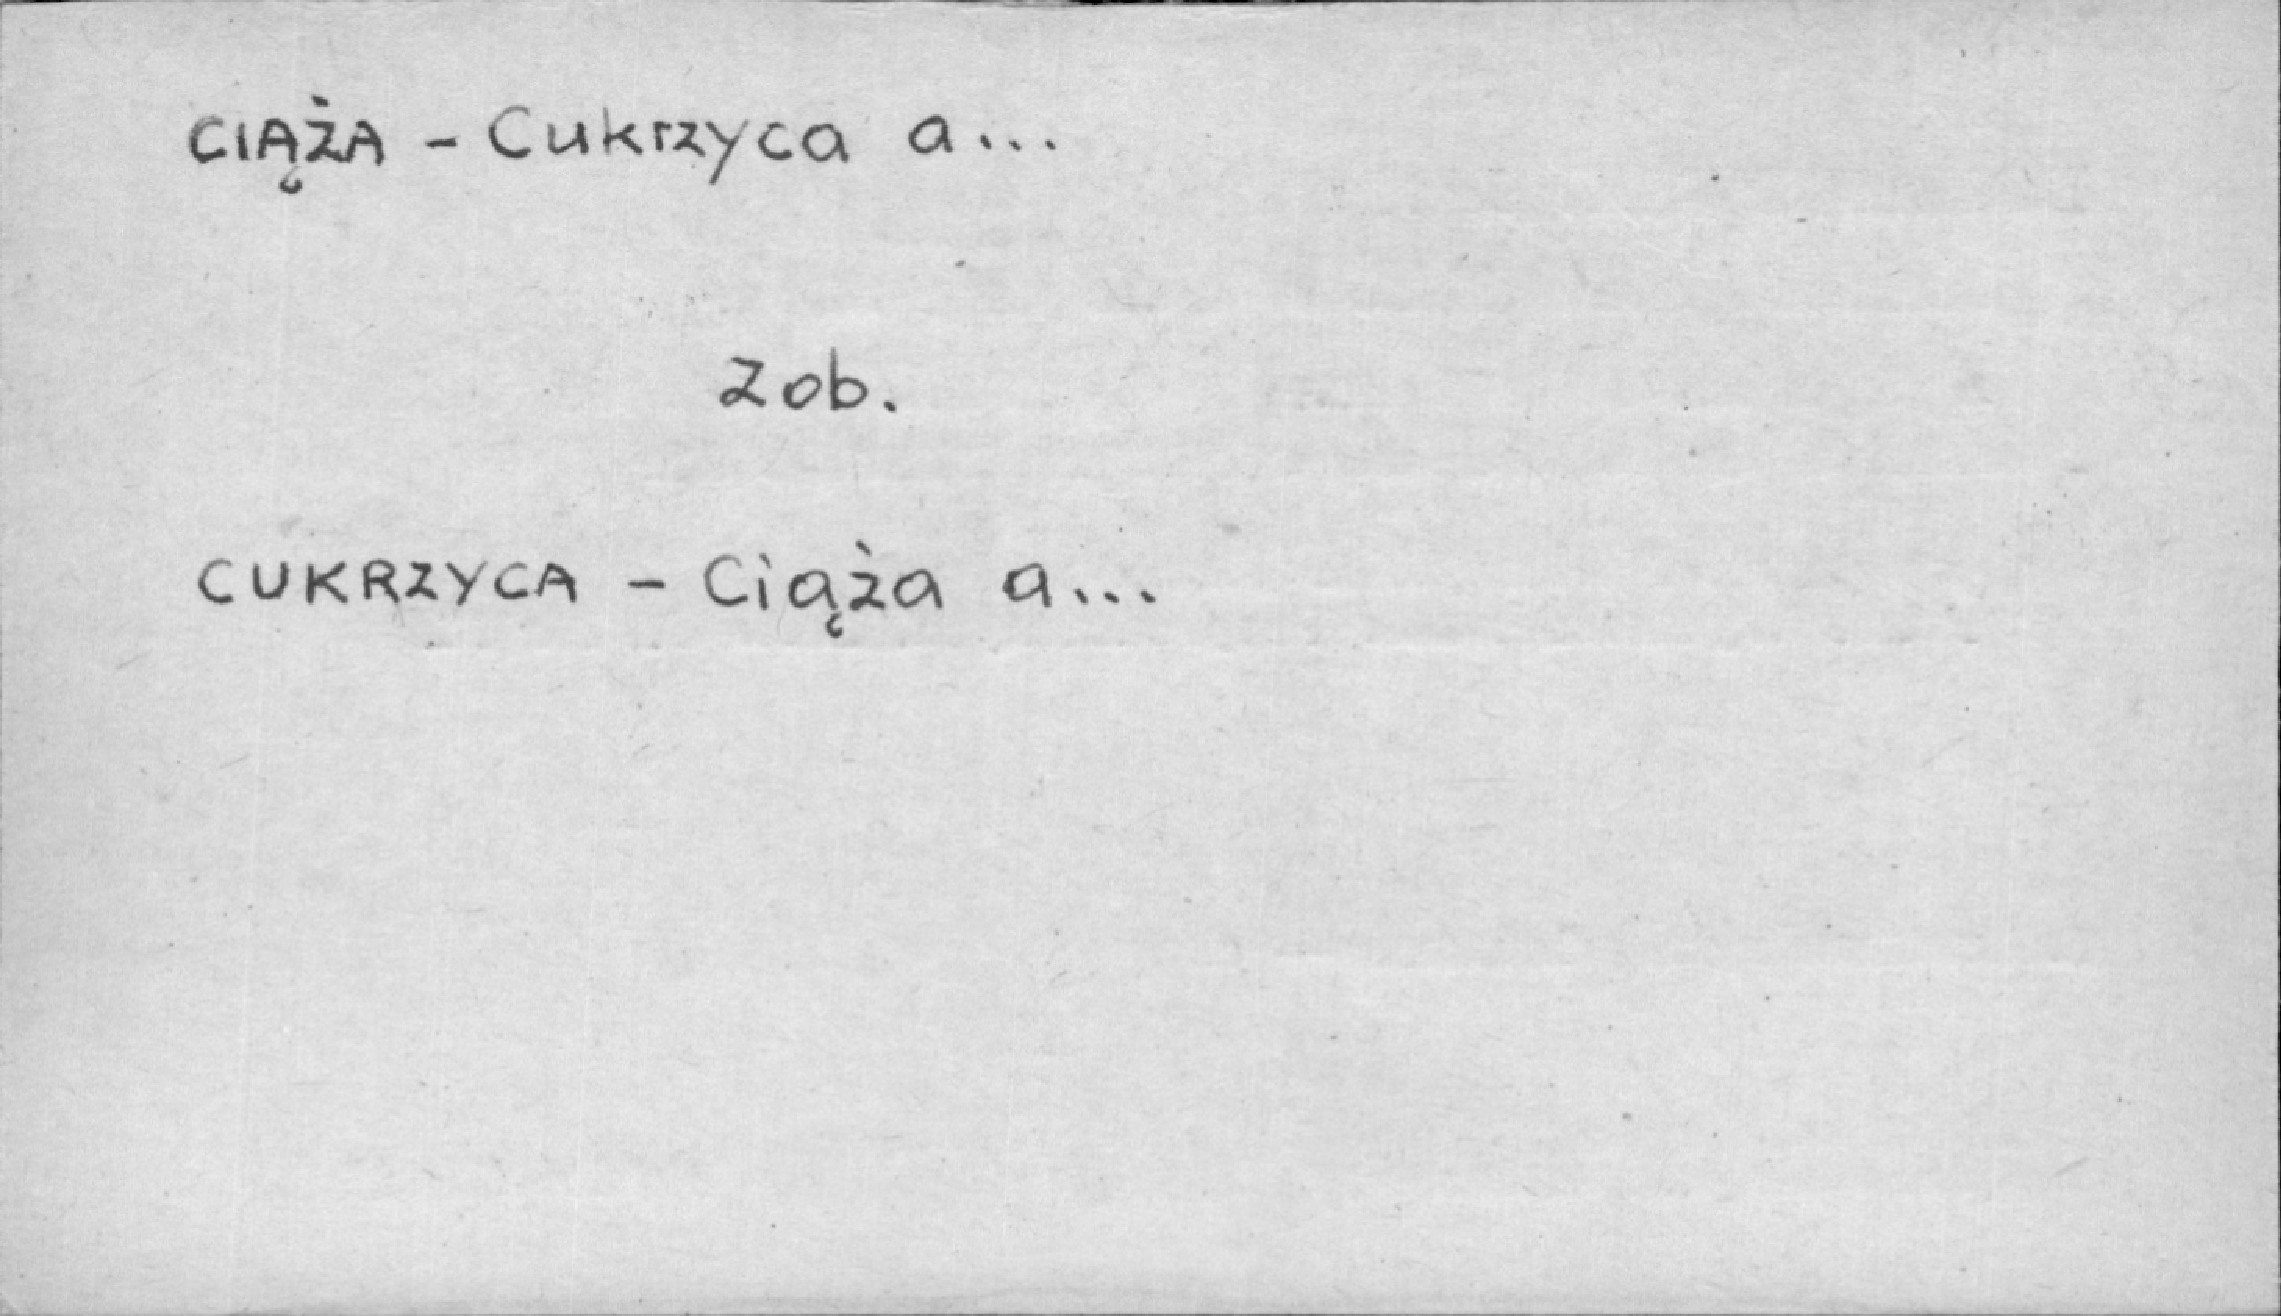 CIĄŻA - Cukrzyca a...
Zob.
CUKRZYCA - Ciąża a...